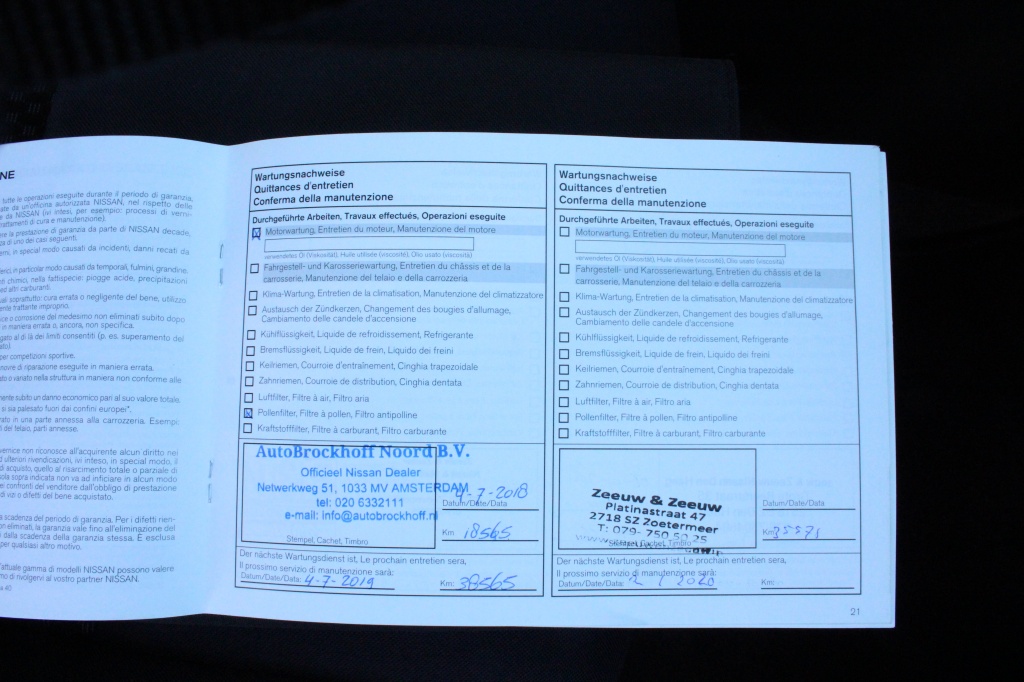 NE
tutte le operazioni eseguite durante il periodo di garanzia,
da un'officina autorizzata NISSAN, nel rispetto delle
da NISSAN (ivi intesi, per esempio: processi di verni-
trattamenti di cura e manutenzione).
la prestazione di garanzia da parte di NISSAN decade,
di uno dei casi seguenti.
in special modo causati da incidenti, danni recati da
in particolar modo causati da temporali, fulmini, grandine,
chimici, nella fattispecie: piogge acide, precipitazioni
altri carburanti.
soprattutto: cura errata o negligente del bene, utilizzo
trattante improprio.
o corrosione del medesimo non eliminati subito dopo
in maniera errata o, ancora, non specifica.
al di là dei limiti consentiti (p. es. superamento del
per competizioni sportive.
di riparazione eseguite in maniera errata.
o variato nella struttura in maniera non conforme alle
subito un danno economico pari al suo valore totale.
si sia palesato fuori dai confini europei".
in una parte annessa alla carrozzeria. Esempi:
del telaio, parti annesse.
non riconosce all'acquirente alcun diritto nei
ulteriori rivendicazioni, ivi inteso, in special modo, il
di acquisto, quello al risarcimento totale o parziale di
sopra indicata non va ad inficiare in alcun modo
nei confronti del venditore dall'obbligo di prestazione
di vizi o difetti del bene acquistato.
scadenza del periodo di garanzia. Per i difetti
eliminati, la garanzia vale fino all'eliminazione del
dalla scadenza della garanzia stessa. È esclusa
per qualsiasi altro motivo.
l'attuale gamma di modelli NISSAN possono valere
di rivolgervi al vostro partner NISSAN.
Wartungsnachweise
Quittances d'entretien
Conferma della manutenzione
Durchgeführte Arbeiten, Travaux effectués, Operazioni eseguite
Motorwartung, Entretien du moteur, Manutenzione del motore
verwendetes Öl (Viskosität), Huile utilisée (viscosité), Olio usato (viscosità)
Fahrgestell- und Karosseriewartung, Entretien du châssis et de la
carrosserie, Manutenzione del telaio e della carrozzeria
Klima-Wartung, Entretien de la climatisation, Manutenzione del climatizzatore
Austausch der Zündkerzen, Changement des bougies d'allumage,
Cambiamento delle candele d'accensione
Kühlflüssigkeit, Liquide de refroidissement, Refrigerante
Bremsflüssigkeit, Liquide de frein, Liquido dei freini
Keilriemen, Courroie d'entraînement, Cinghia trapezoidale
Zahnriemen, Courroie de distribution, Cinghia dentata
Luftfilter, Filtre à air, Filtro aria
Pollenfilter, Filtre à pollen, Filtro antipolline
Kraftstofffilter, Filtre à carburant, Filtro carburante
AutoBrockhoff Noord B.V.
Officieel Nissan Dealer
Netwerkweg 51, 1033 MV AMSTERDAM
tel: 020 6332111
e-mail: info@autobrockhoff.nl
Stempel, Cachet, Timbro
4-7-2018
Datum/Date/Data
Km 18565
Der nächste Wartungsdienst ist, Le prochain entretien sera,
Il prossimo servizio di manutenzione sarà:
Datum/Date/Data: 4-7-2019 Km: 38565
Wartungsnachweise
Quittances d'entretien
Conferma della manutenzione
Durchgeführte Arbeiten, Travaux effectués, Operazioni eseguite
Motorwartung, Entretien du moteur, Manutenzione del motore
verwendetes Öl (Viskosität), Huile utilisée (viscosité), Olio usato (viscosità)
Fahrgestell- und Karosseriewartung, Entretien du châssis et de la
carrosserie, Manutenzione del telaio e della carrozzeria
Klima-Wartung, Entretien de la climatisation, Manutenzione del climatizzatore
Austausch der Zündkerzen, Changement des bougies d'allumage,
Cambiamento delle candele d'accensione
Kühlflüssigkeit, Liquide de refroidissement, Refrigerante
Bremsflüssigkeit, Liquide de frein, Liquido dei freini
Keilriemen, Courroie d'entraînement, Cinghia trapezoidale
Zahnriemen, Courroie de distribution, Cinghia dentata
Luftfilter, Filtre à air, Filtro aria
Pollenfilter, Filtre à pollen, Filtro antipolline
Kraftstofffilter, Filtre à carburant, Filtro carburante
Zeeuw & Zeeuw
Platinastraat 47
2718 SZ Zoetermeer
T: 079- 750 50 25
Stempel, Cachet, Timbro
Datum/Date/Data
Km
Der nächste Wartungsdienst ist, Le prochain entretien sera,
Il prossimo servizio di manutenzione sarà:
Datum/Date/Data: 2020 Km:
21